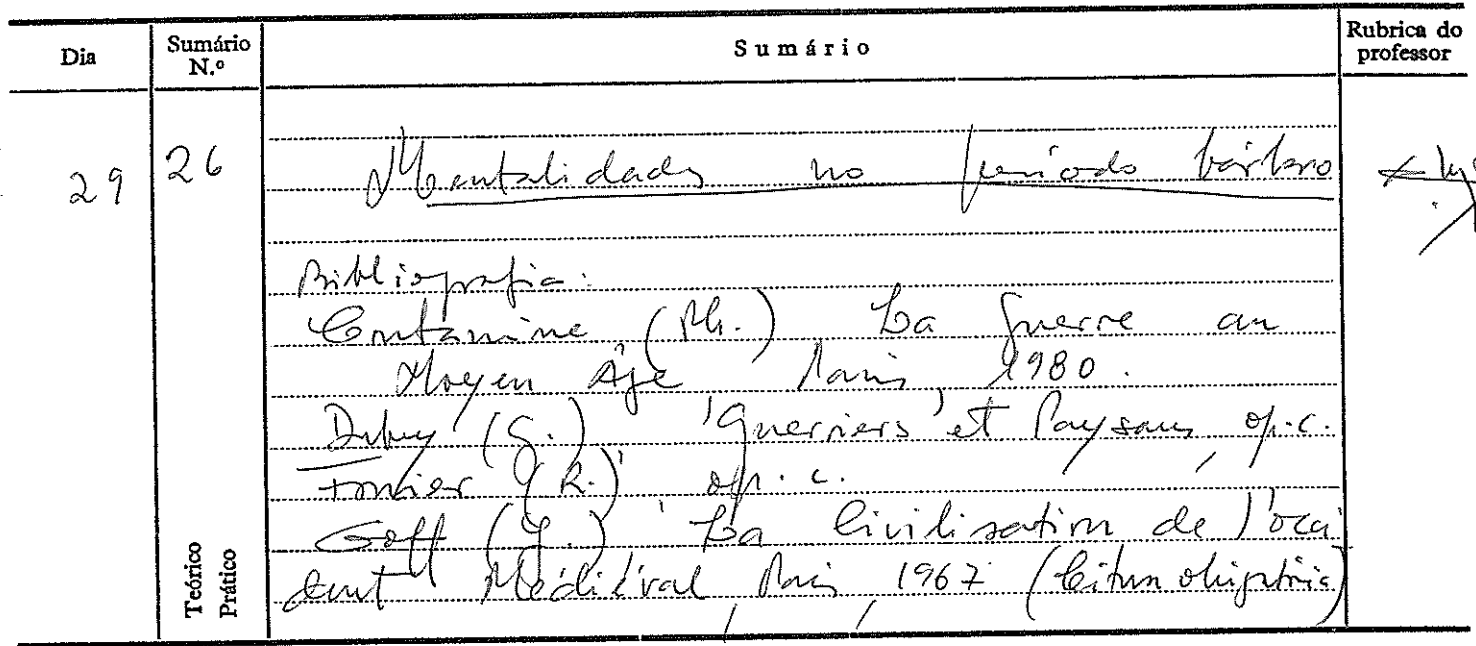 Dia
Sumário N.º
Sumário
Rubrica do professor
29
26
Mentalidades no período bárbaro
Bibliografia:
Contamine (Ph.) La Guerre au
Moyen Âge, Paris, 1980.
Duby (G.), Guerriers et Paysans, op. c.
(R.), op. c.
Goff (J.), La Civilisation de l'occi
dent Médiéval, Paris, 1967 (Leitura obrigatória)
Teórico
Prático